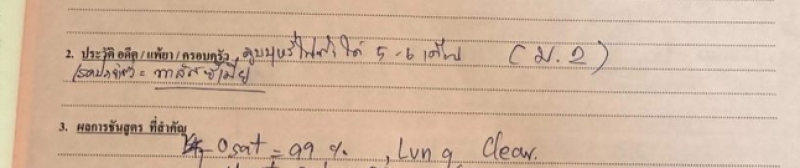 2. ประวัติ อดีต/แพ้ยา/ครอบครัว สูบบุหรี่ไฟฟ้าได้ 5-6 เดือน (ม.2)
โรคประจำตัว = ทาลัสซีเมีย
3. ผลการชันสูตร ที่สำคัญ
O sat = 99 %, Lung Clear.